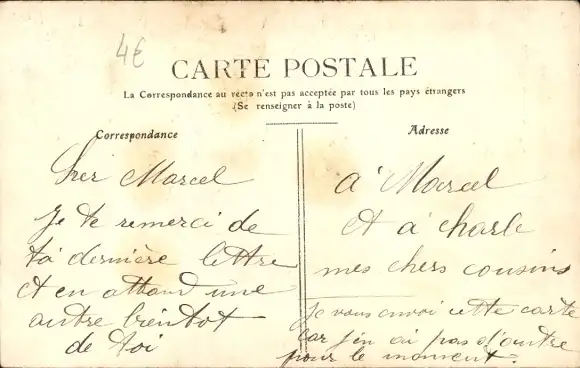 4€
CARTE POSTALE
La Correspondance au recto n'est pas acceptée par tous les pays étrangers
(Se renseigner à la poste)
Correspondance
Cher Marcel
Je te remerci de
ta dernière lettre
et en attand une
autre bientot
de toi
Adresse
à Marcel
et à charle
mes chers cousins
Je vous envoi cette carte
car j'en ai pas d'autre
pour le moment.